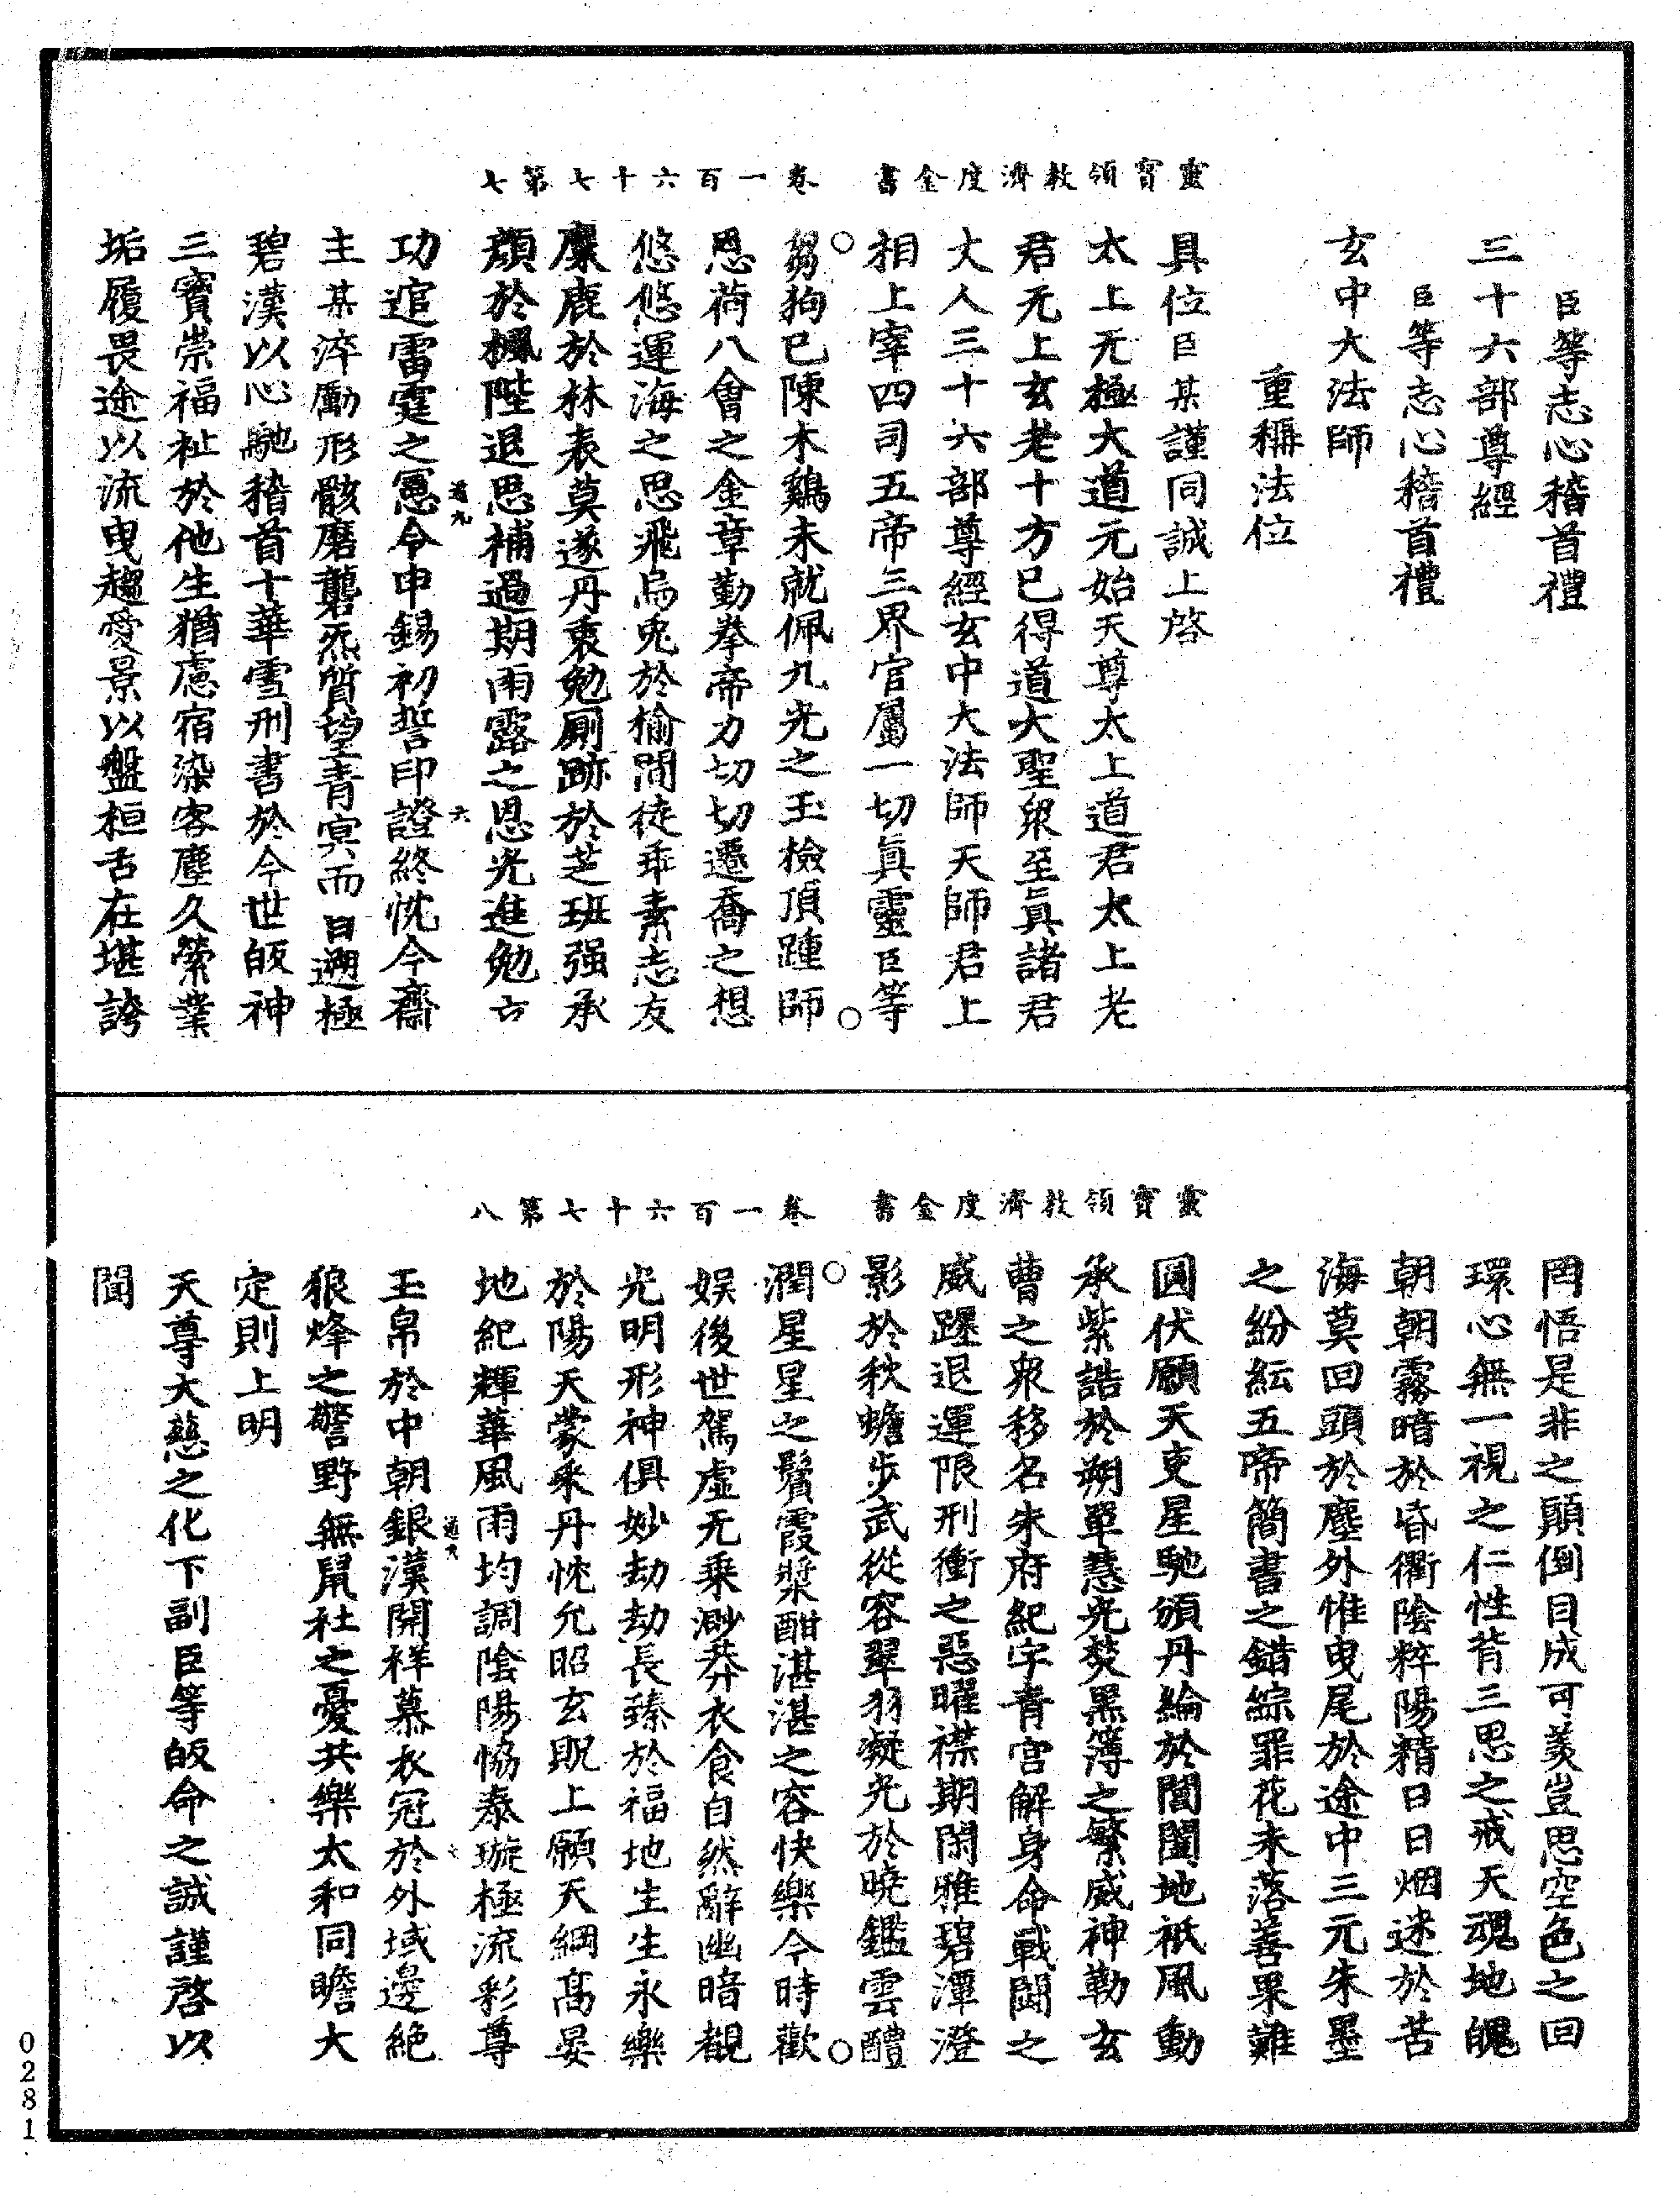 臣等志心稽首禮
三十六部尊經
臣等志心稽首禮
玄中大法師
重稱法位
具位臣某謹同誠上啓
太上无極大道元始天尊太上道君太上老
君元上玄老十方已得道大聖衆至眞諸君
丈人三十六部尊經玄中大法師天師君上
相上宰四司五帝三界官屬一切眞靈臣等
靈寶領敎濟度金書
卷一百六十七第七
芻狗已陳木鷄未就佩九光之玉檢頂踵師
恩荷八會之金章勤拳帝力切切遷喬之想
悠悠運海之思飛烏兎於榆間徒乖素志友
麋鹿於林表莫遂丹衷勉厠跡於芝班强承
顔於楓陛退思補過期雨露之恩光進勉立
功逭雷霆之冤令申錫初誓印證終忱今齋
主某淬勵形骸磨礱炁質望青冥而日遡極
碧漢以心馳稽首十華雪刑書於今世皈神
三寶崇福祉於他生猶慮宿染客塵久縈業
垢履畏途以流曳趨愛景以盤桓舌在堪誇
罔悟是非之顚倒目成可羡豈思空色之回
環心無一視之仁性背三思之戒天魂地魄
朝朝霧暗於昏衢陰粹陽精日日烟迷於苦
海莫回頭於塵外惟曳尾於途中三元朱墨
之紛紜五帝簡書之錯綜罪花未落善果難
圓伏願天吏星馳頒丹綸於閶闔地祇風動
承紫誥於朔單慧光焚黑簿之繁威神勒玄
曹之衆移名朱府紀字青宮解身命戰鬪之
威躔退運限刑衝之惡曜襟期閑雅碧潭澄
影於秋蟾步武從容翠羽凝光於曉鑑雲醴
靈寶領敎濟度金書
卷一百六十七第八
潤星星之鬢霞漿酣湛湛之容快樂今時歡
娛後世駕虛无乗渺莽衣食自然辭幽暗覩
光明形神俱妙劫劫長臻於福地生生永樂
於陽天蒙釆丹忱允昭玄貺上願天綱高晏
地紀輝華風雨均調陰陽恊泰璇極流彩尊
玉帛於中朝銀漢開祥慕衣冠於外域邊絶
狼烽之警野無鼠社之憂共樂太和同瞻大
定則上明
天尊大慈之化下副臣等皈命之誠謹啓以
聞
0281